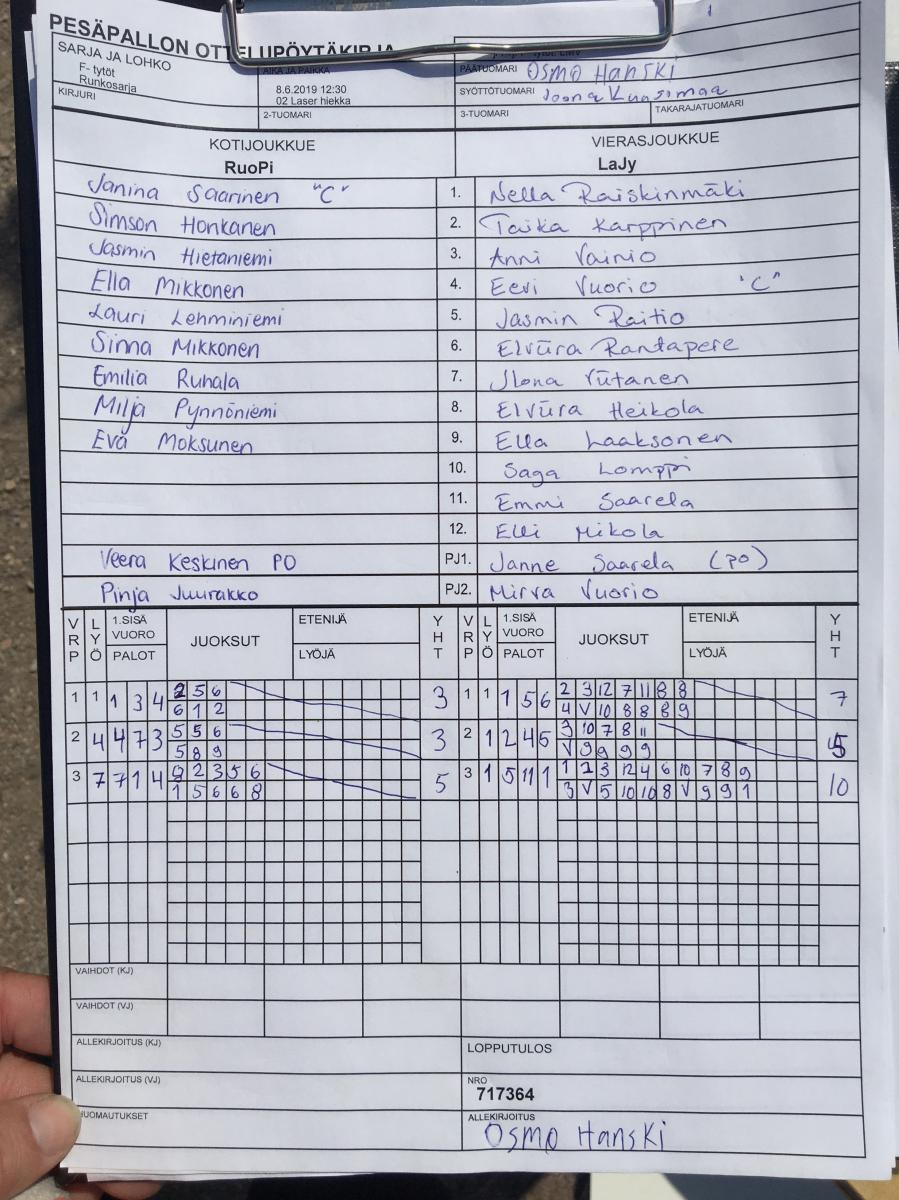 PESÄPALLON OTTELUPÖYTÄKIRJA
SARJA JA LOHKO
F- tytöt
Runkosarja
AIKA JA PAIKKA
8.6.2019 12:30
02 Laser hiekka
PÄÄTUOMARI Osmo Hanski
SYÖTTÖTUOMARI Joona Kuusimaa
KIRJURI
2-TUOMARI
3-TUOMARI
TAKARAJATUOMARI
KOTIJOUKKUE
RuoPi
VIERASJOUKKUE
LaJy
Janina Saarinen "C" 1. Nella Raiskinmäki
Simson Honkanen 2. Taika Karppinen
Jasmin Hietaniemi 3. Anni Vainio
Ella Mikkonen 4. Eevi Vuorio "C"
Lauri Lehminiemi 5. Jasmin Raitio
Sinna Mikkonen 6. Elviira Rantapere
Emilia Ruhala 7. Ilona Viitanen
Milja Pynnöniemi 8. Elviira Heikola
Eva Moksunen 9. Ella Laaksonen
10. Saga Lomppi
11. Emmi Saarela
12. Elli Mikola
Veera Keskinen PO PJ1. Janne Saarela (PO)
Pinja Juurakko PJ2. Mirva Vuorio
VRP LYÖ 1.SISÄ VUORO PALOT JUOKSUT ETENIJÄ LYÖJÄ YHT VRP LYÖ 1.SISÄ VUORO PALOT JUOKSUT ETENIJÄ LYÖJÄ YHT
1 1 1 3 4 2 5 6 3 1 1 1 5 6 2 3 12 7 11 8 8 7
6 1 2 4 V 10 8 8 8 9
2 4 4 7 3 5 5 6 3 2 1 2 4 5 3 10 7 8 11 5
5 8 9 V 9 9 9 9
3 7 7 1 4 9 2 3 5 6 5 3 1 5 11 1 1 2 3 12 4 6 10 7 8 9 10
1 5 6 6 8 3 V 5 10 10 8 V 9 9 1
VAIHDOT (KJ)
VAIHDOT (VJ)
ALLEKIRJOITUS (KJ)
LOPPUTULOS
ALLEKIRJOITUS (VJ)
NRO
717364
HUOMAUTUKSET
ALLEKIRJOITUS
Osmo Hanski